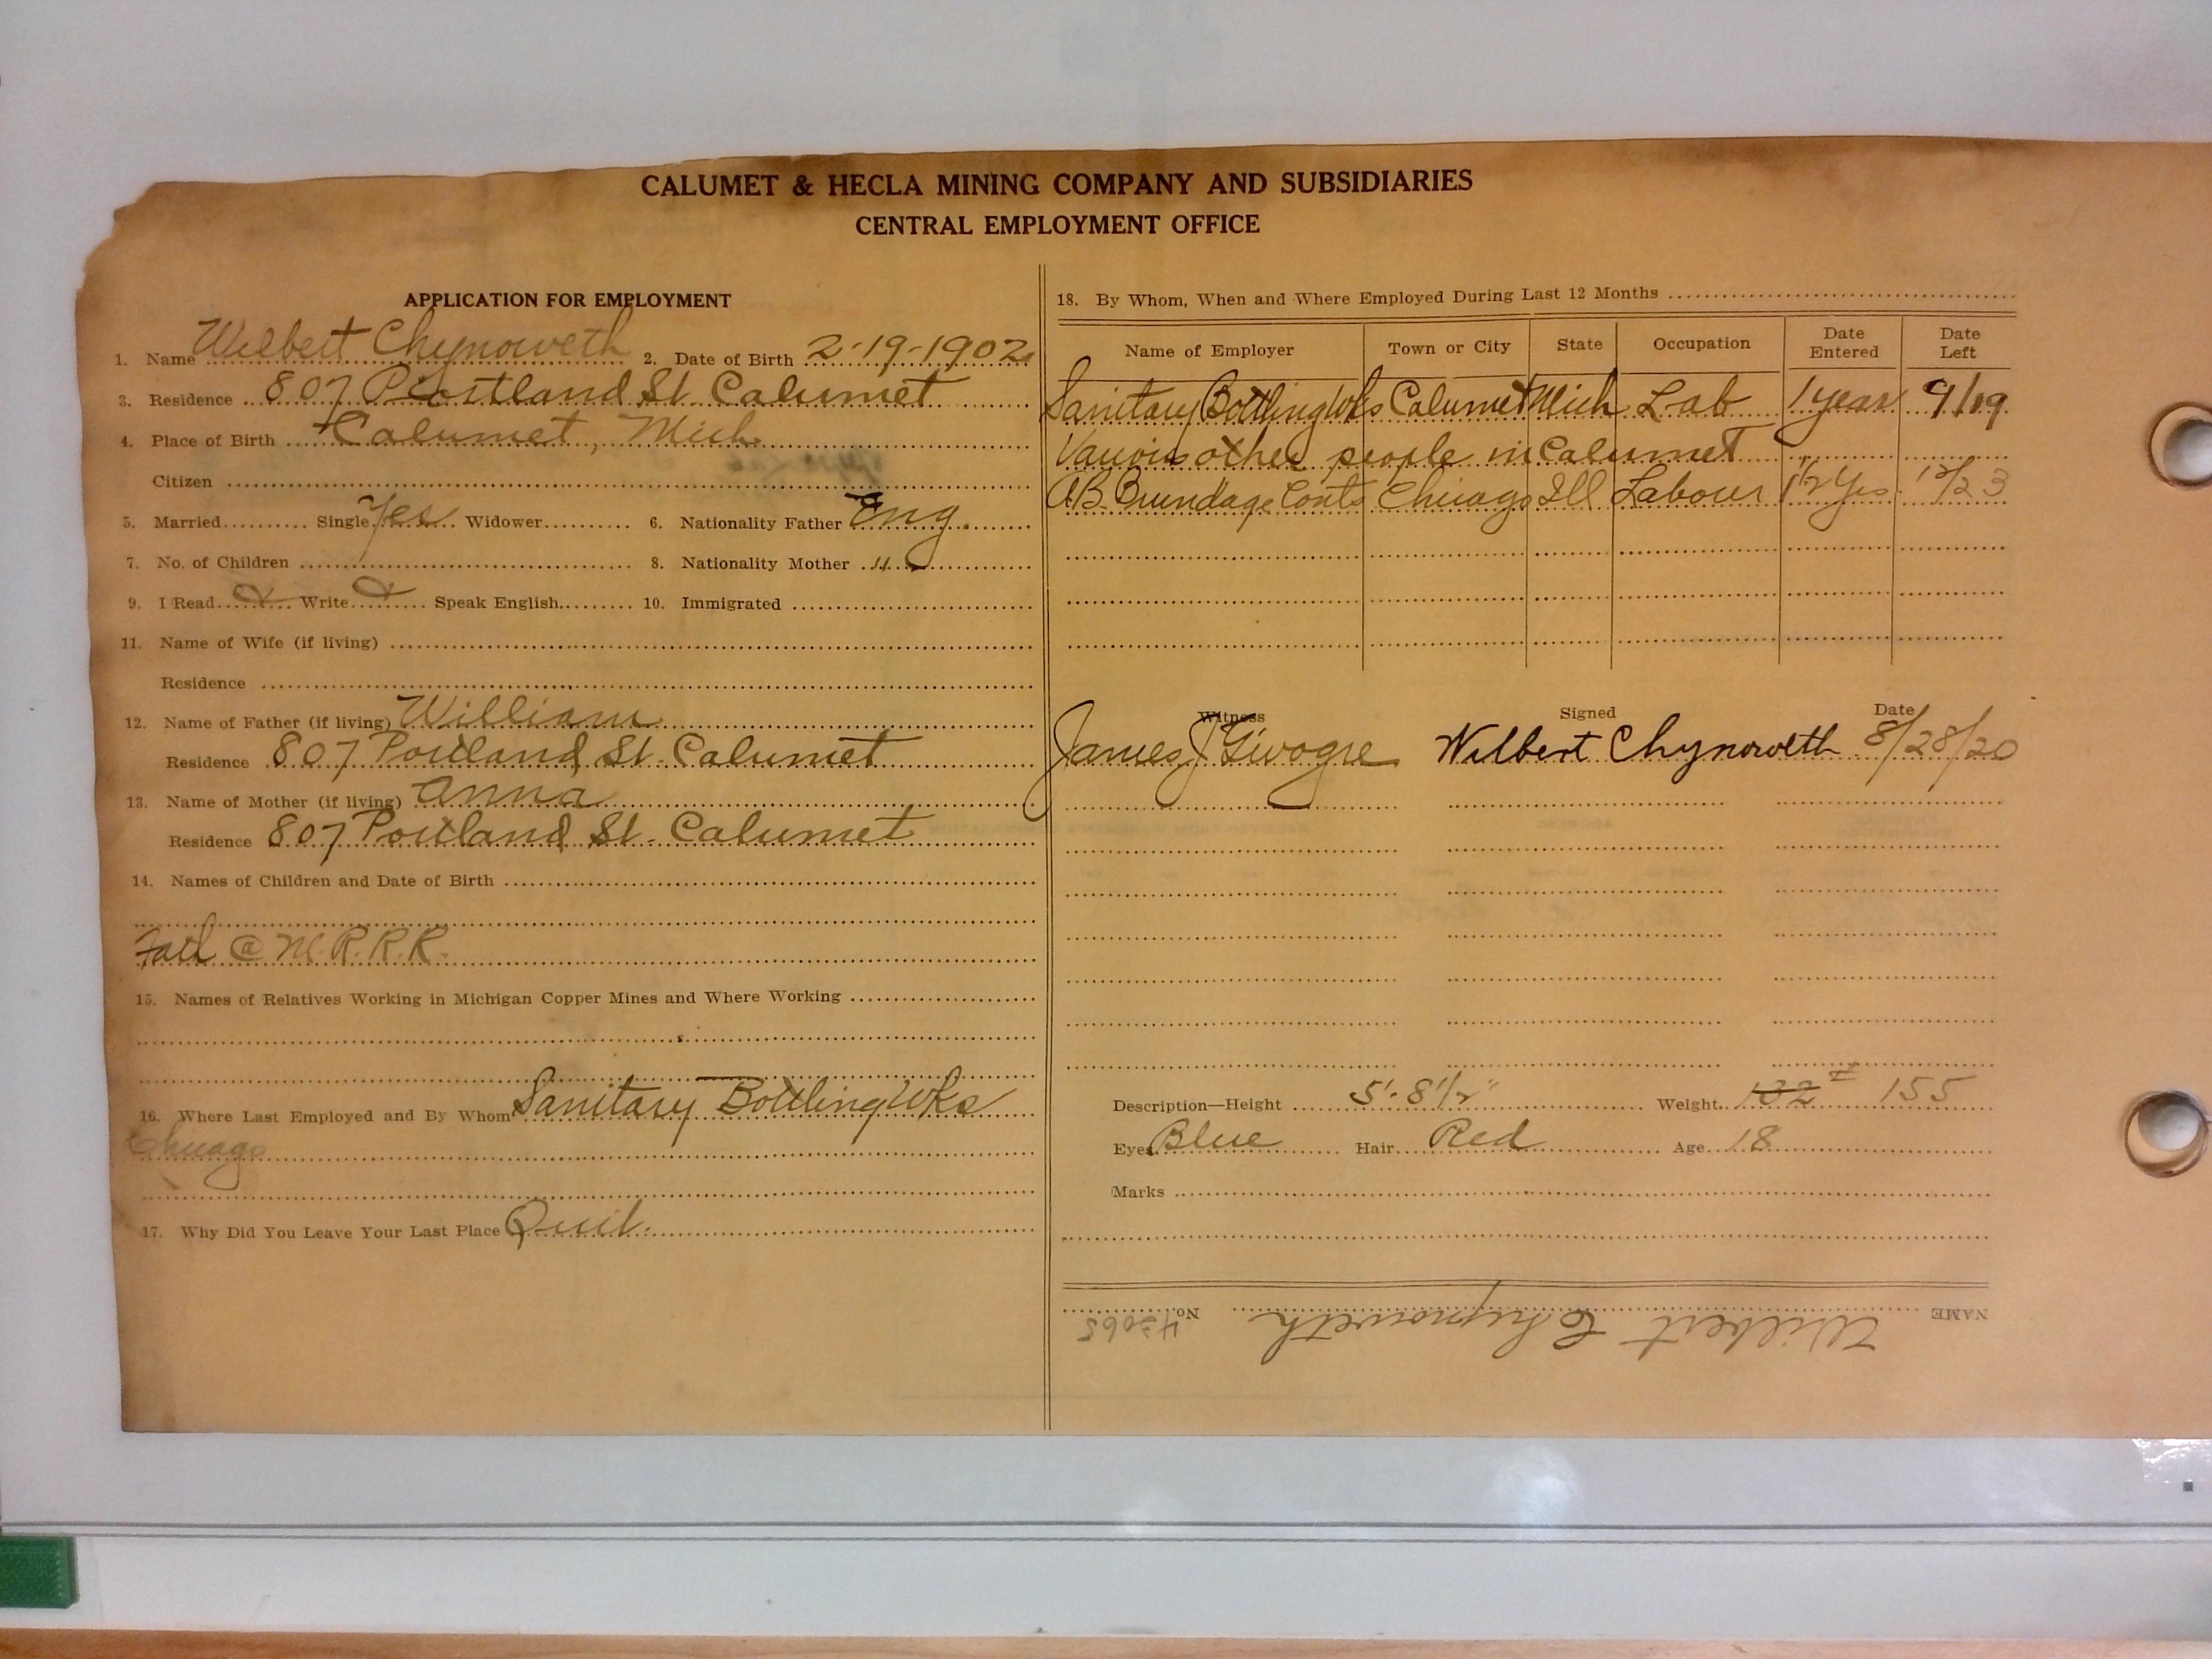 CALUMET & HECLA MINING COMPANY AND SUBSIDIARIES
CENTRAL EMPLOYMENT OFFICE
APPLICATION FOR EMPLOYMENT
1. Name Wilbert Chynoweth 2. Date of Birth 2-19-1902
3. Residence 807 Portland St. Calumet
4. Place of Birth Calumet, Mich.
Citizen
5. Married Single Yes Widower 6. Nationality Father Eng.
7. No. of Children 8. Nationality Mother "
9. I Read Write Speak English 10. Immigrated
11. Name of Wife (if living)
Residence
12. Name of Father (if living) William
Residence 807 Portland St. Calumet
13. Name of Mother (if living) Anna
Residence 807 Portland St. Calumet
14. Names of Children and Date of Birth
Fath @ M.R.R.R.
15. Names of Relatives Working in Michigan Copper Mines and Where Working
16. Where Last Employed and By Whom Sanitary Bottling Wks
Chicago
17. Why Did You Leave Your Last Place Quit.
18. By Whom, When and Where Employed During Last 12 Months
Name of Employer Town or City State Occupation Date Entered Date Left
Sanitary Bottling Wks Calumet Mich Lab 1 year 9/19
Various other people in Calumet
A.B. Brundage Conts Chicago Ill Labour 1 1/2 Yrs. 12/23
Witness Signed Date
James J Wilbert Chynoweth 8/28/20
Description—Height 5'-8 1/2" Weight 132 # 155
Eyes Blue Hair Red Age 18
Marks
NAME Wilbert Chynoweth No. 43065